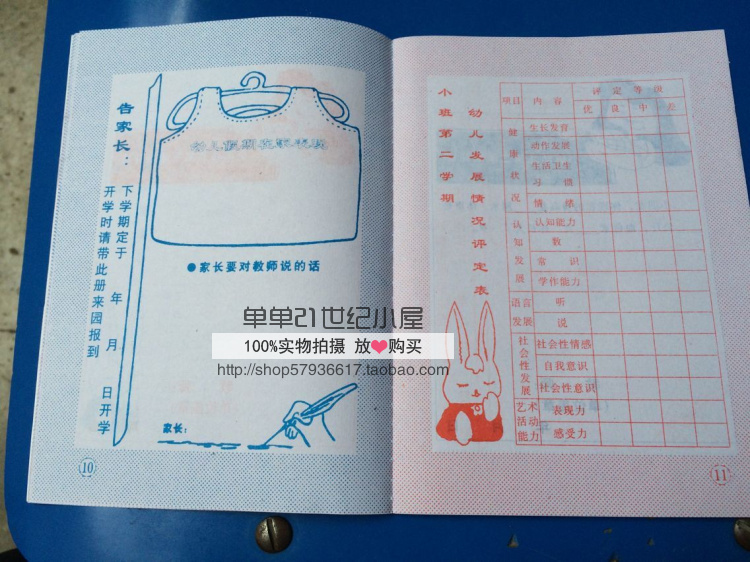 告家长：
下学期定于　年　月　日开学
开学时请带此册来园报到
幼儿假期在家表现
●家长要对教师说的话
家长：
10
单单21世纪小屋
100%实物拍摄 放❤购买
http://shop57936617.taobao.com/
小班第二学期
幼儿发展情况评定表
项目 内容 评定等级
优 良 中 差
健康状况
生长发育
动作发展
生活卫生习惯
情绪
认知发展
认知能力
数
常识
学作能力
语言发展
听
说
社会性发展
社会性情感
自我意识
社会性意识
艺术活动能力
表现力
感受力
11